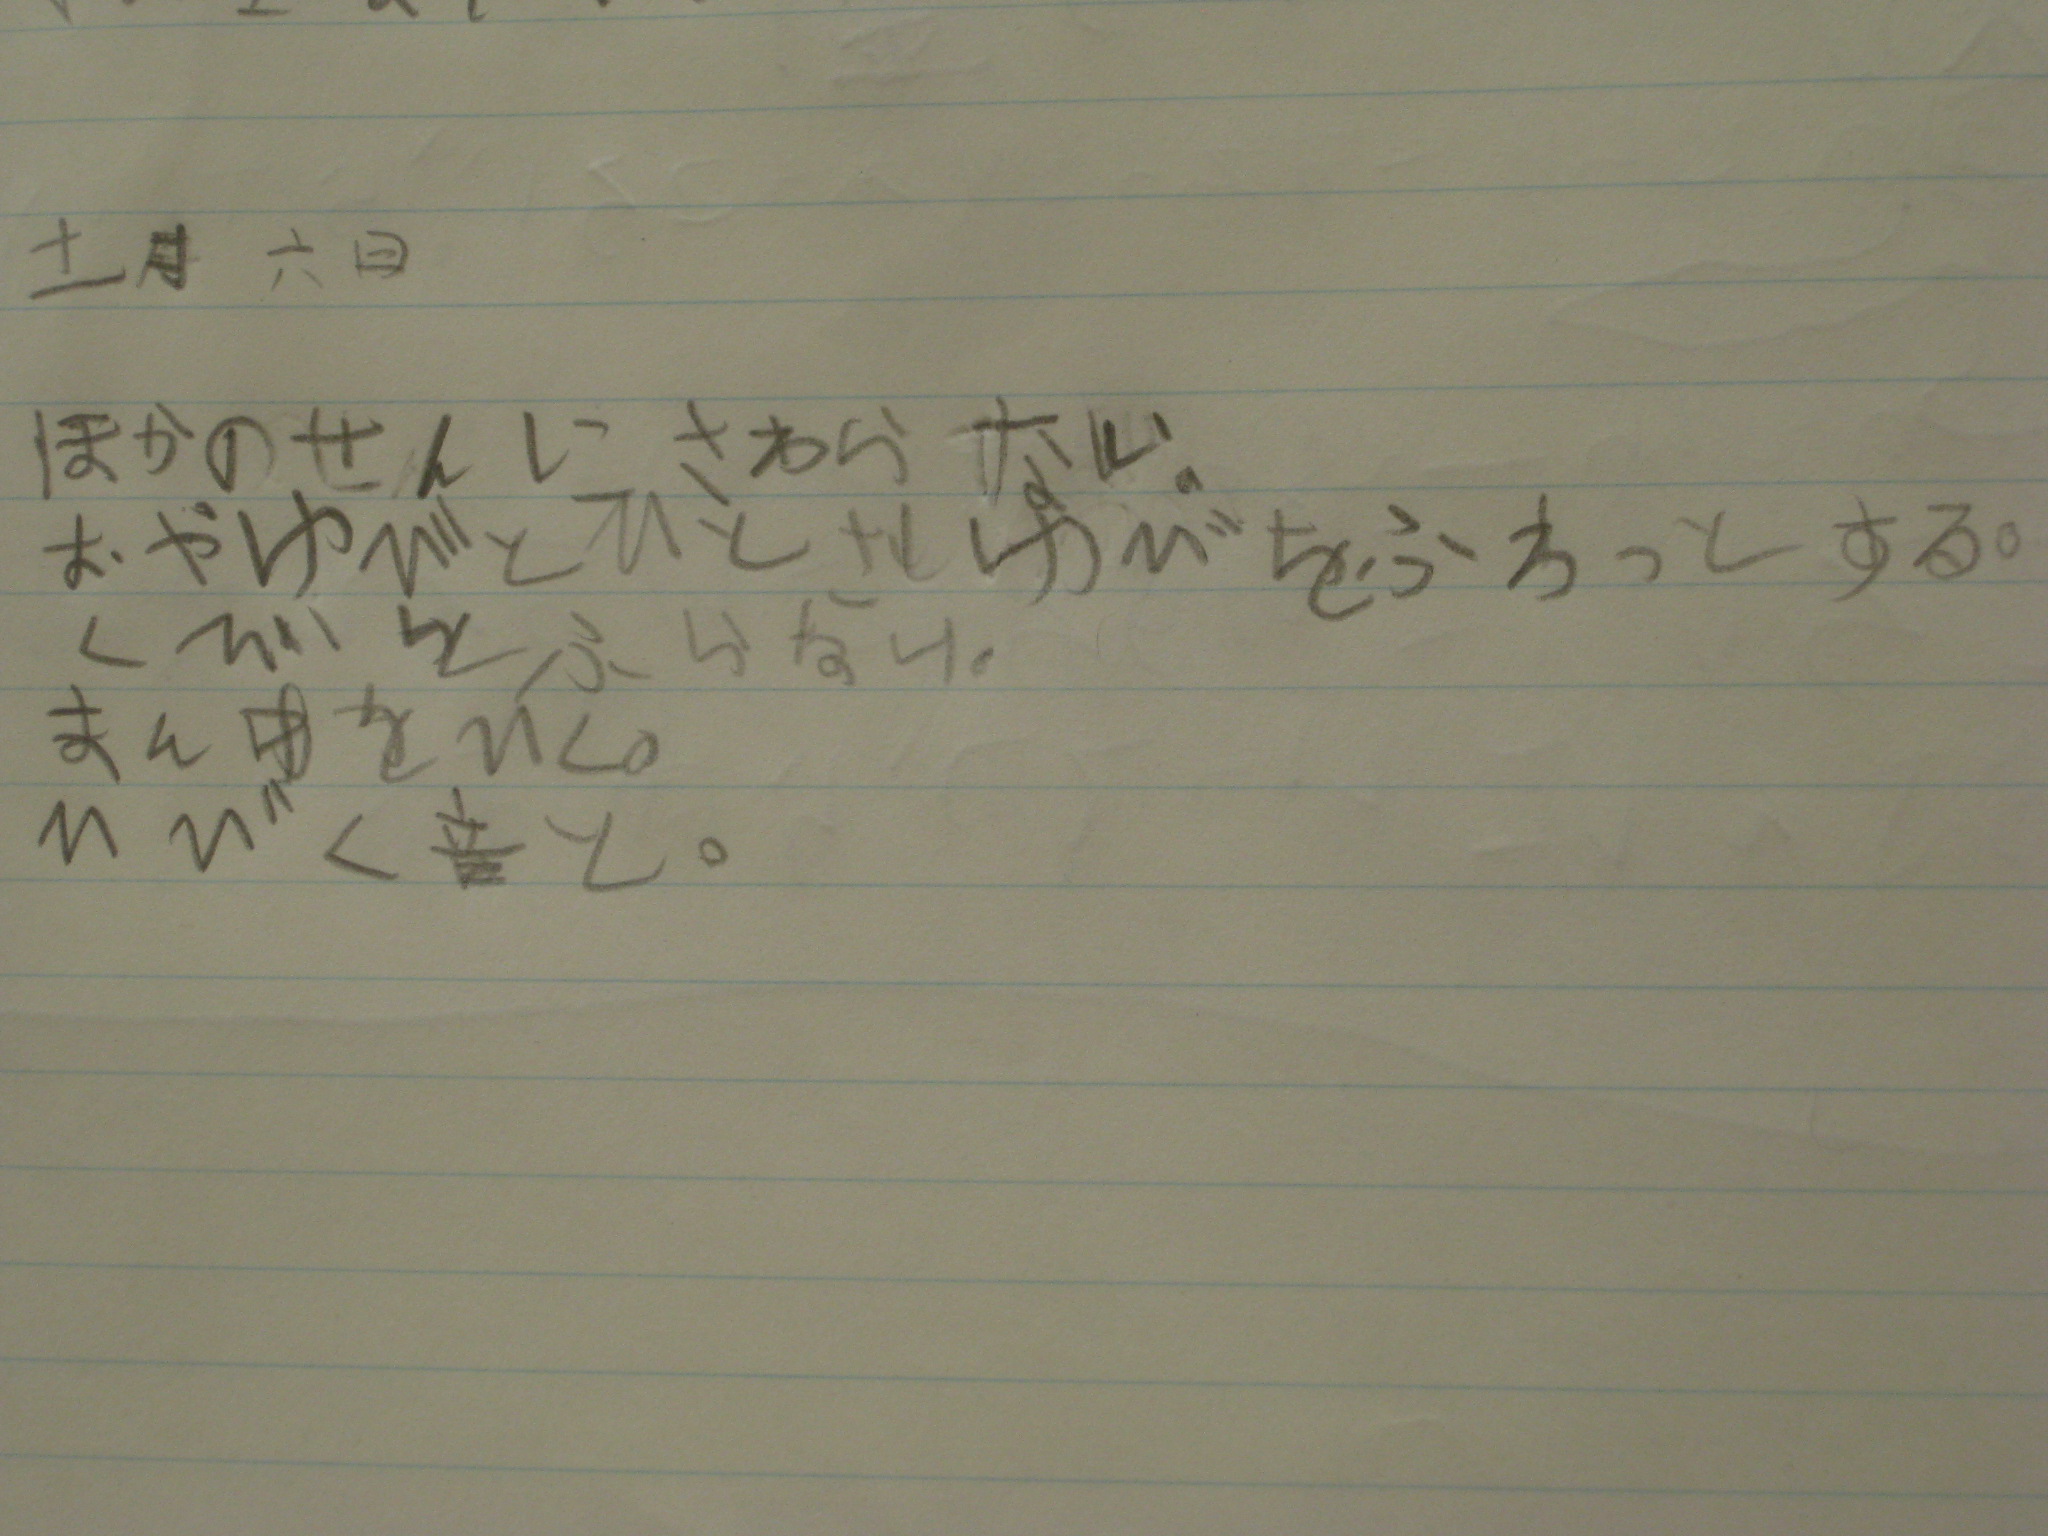 十一月 六日
ほかのせんにさわらない。
おやゆびとひとさしゆびをふわっとする。
くびをふらない。
まん中をひく。
ひびく音と。